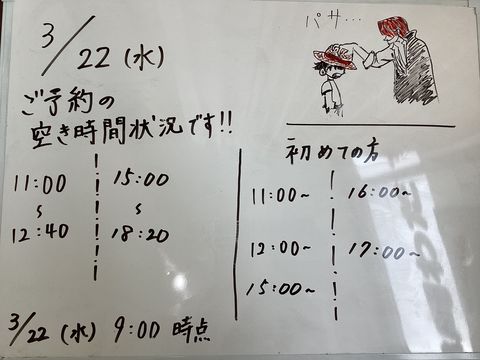 3/22 (水)
パサ…
ご予約の
空き時間状況です!!
11:00
~
12:40
15:00
~
18:20
初めての方
11:00~
12:00~
15:00~
16:00~
17:00~
3/22 (水) 9:00 時点